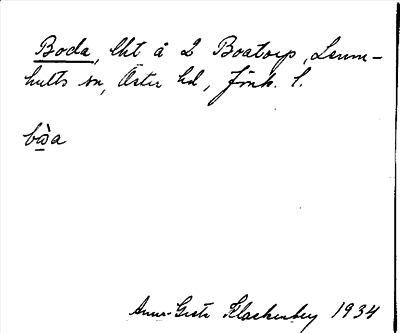 Boda, lht å 2 Boatorp, Lemn-
hults sn, Öster hd, Jönk. l.
bὼa
Anna-Greta Klackenberg 1934